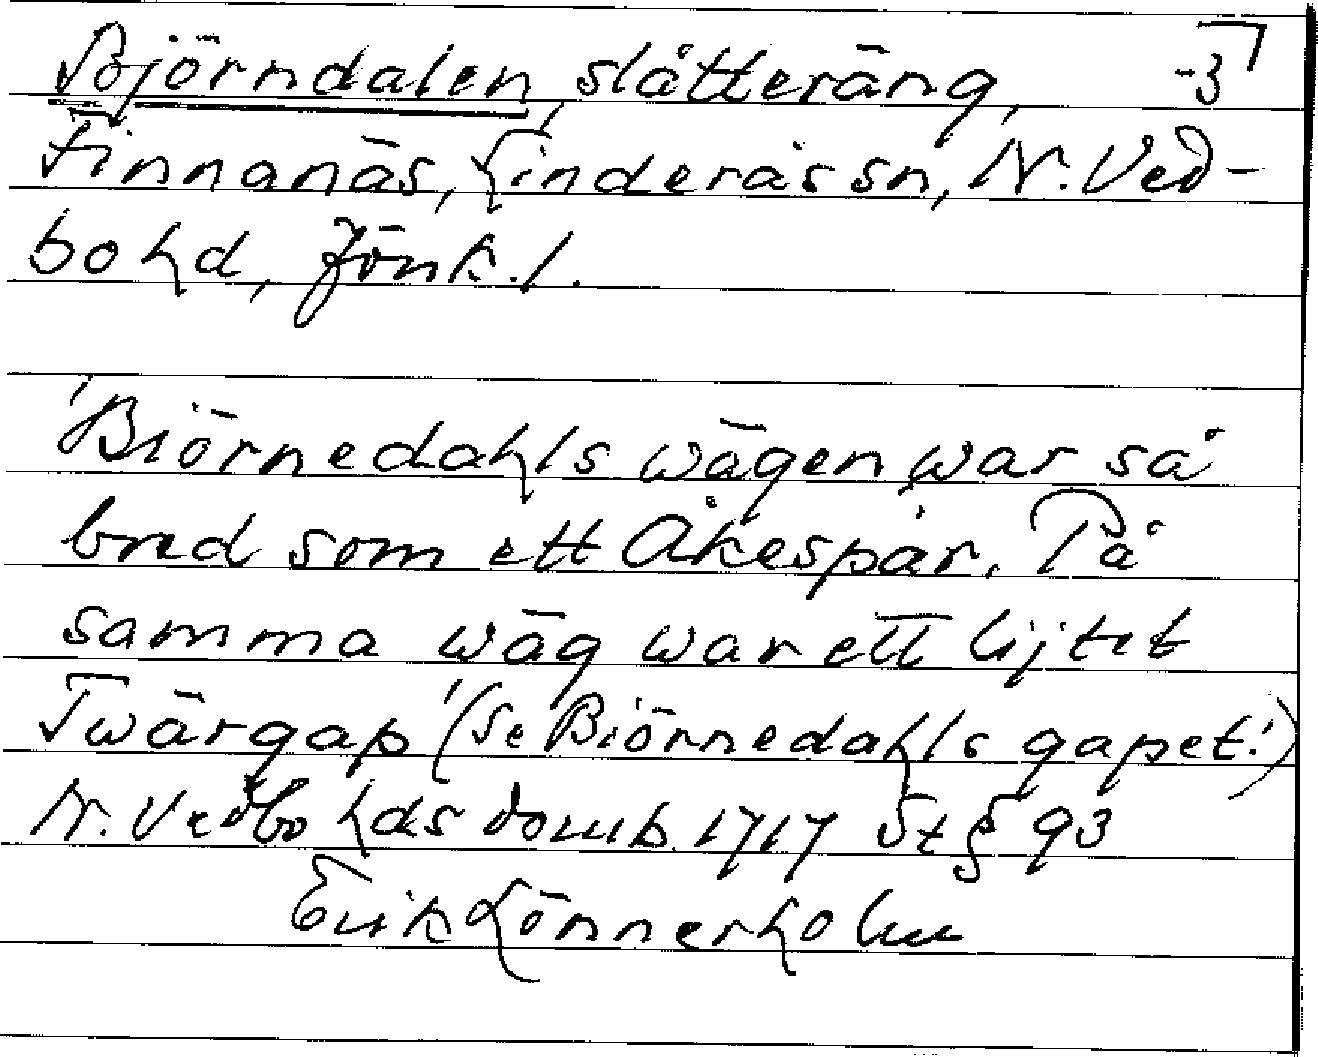 Björndalen, slåtteräng, -3
Finnanäs, Linderås sn, N. Ved-
bo hd, Jönk. l.
'Biörnedahls wägen war så
bred som ett Åkespår. På
samma wäg war ett lijtet
Twärgap' (Se Biörnedahls gapet!)
N. Vedbo hds domb. 1717 St § 93
Erik Lönnerholm